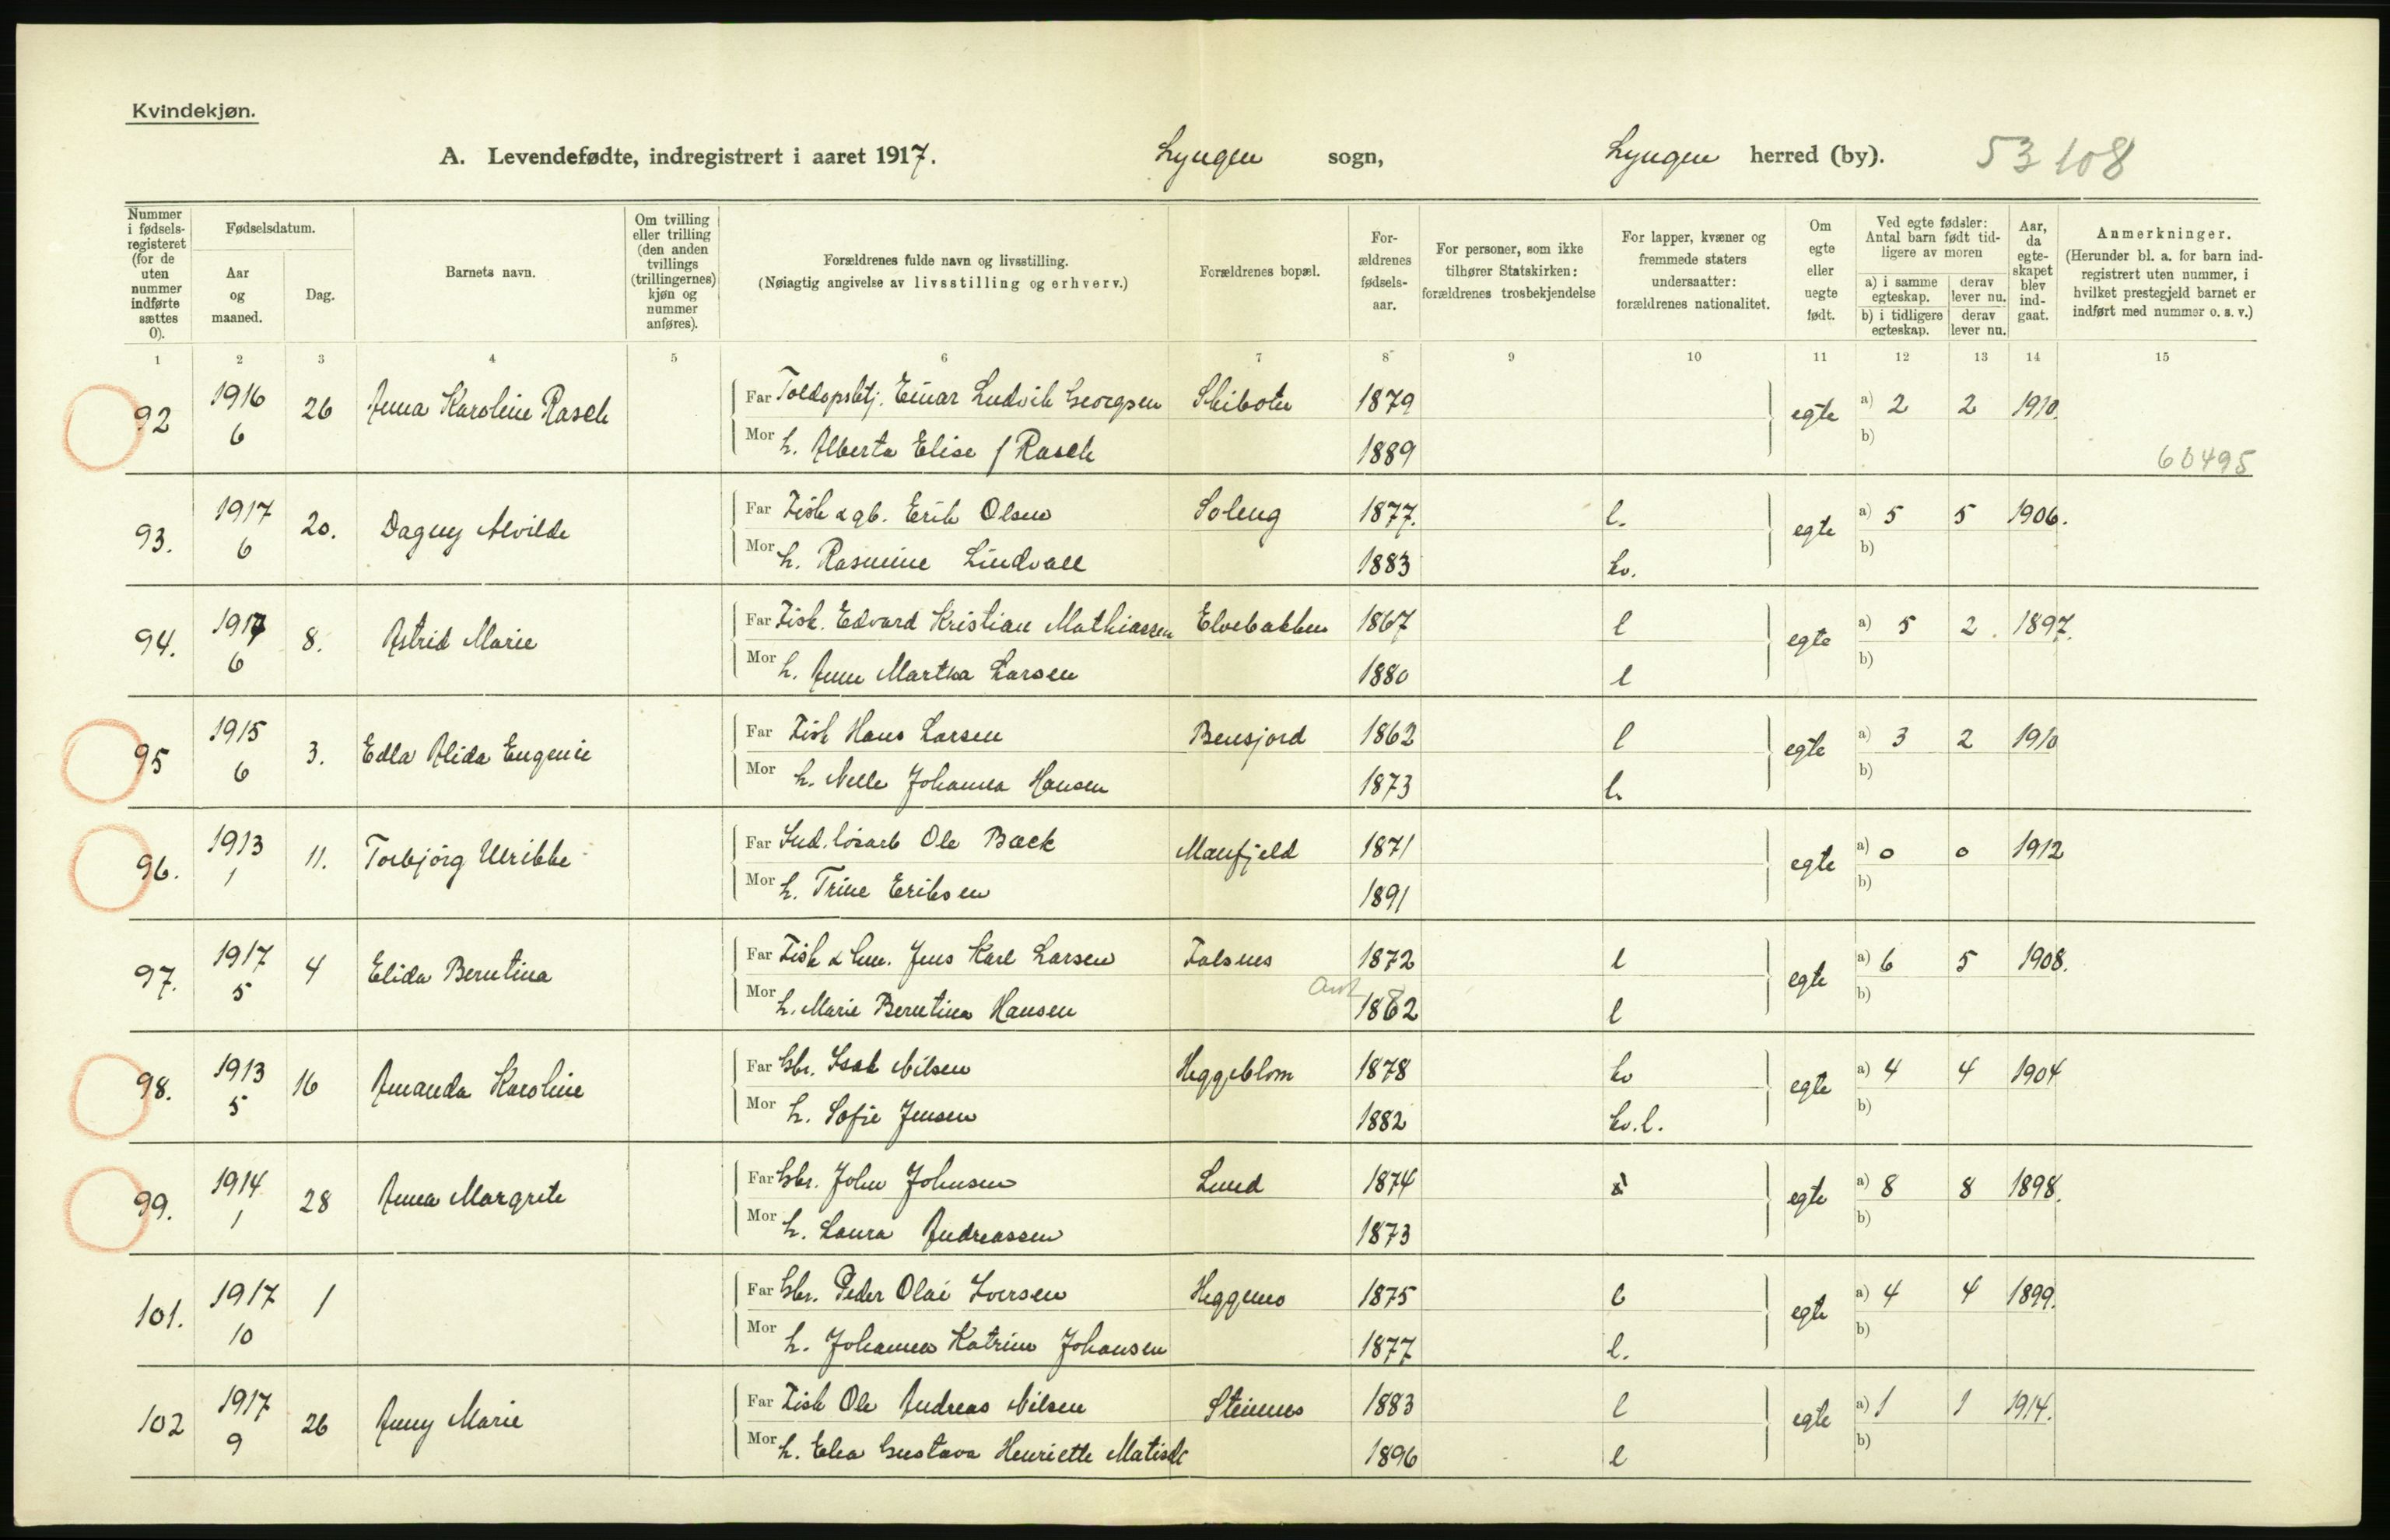 Kvindekjøn.
A. Levendefødte, indregistrert i aaret 1917. Lyngen sogn, Lyngen herred (by). 53 108
Nummer i fødsels-registeret (for de uten nummer indførte sættes 0).
Fødselsdatum.
Aar og maaned.
Dag.
Barnets navn.
Om tvilling eller trilling (den anden tvillings (trillingernes) kjøn og nummer anføres).
Forældrenes fulde navn og livsstilling.
(Nøiagtig angivelse av livsstilling og erhverv.)
Forældrenes bopæl.
For-ældrenes fødsels-aar.
For personer, som ikke tilhører Statskirken: forældrenes trosbekjendelse
For lapper, kvæner og fremmede staters undersaatter: forældrenes nationalitet.
Om egte eller uegte født.
Ved egte fødsler: Antal barn født tid-ligere av moren
a) i samme egteskap. derav lever nu.
b) i tidligere egteskap. derav lever nu.
Aar, da egte-skapet blev ind-gaat.
Anmerkninger.
(Herunder bl. a. for barn ind-registrert uten nummer, i hvilket prestegjeld barnet er indført med nummer o. s. v.)
1 2 3 4 5 6 7 8 9 10 11 12 13 14 15
92 1916 6 26 Anna Karoline Rasch Far Toldopsbtj. Einar Ludvik Georgsen Skibotn 1879 egte a) 2 2 1910.
Mor h. Alberta Elise f Rasch 1889 b) 60495
93. 1917 6 20. Dagny Alvilde Far Fisk & gb. Erik Olsen Soleng 1877. l. egte a) 5 5 1906.
Mor h. Rasmine Lindvall 1883 kv. b)
94. 1917 6 8. Astrid Marie Far Fisk. Edvard Kristian Mathiassen Elvebakken 1867 l egte a) 5 2. 1897.
Mor h. Anne Martha Larsen 1880 l b)
95 1915 6 3. Edla Alida Eugenie Far Fisk Hans Larsen Bensjord 1862 l egte a) 3 2 1910
Mor h. Nelle Johanna Hansen 1873 l. b)
96. 1913 1 11. Torbjörg Ulrikke Far Ind. løsarb Ole Bæck Manfjeld 1871 egte a) 0 0 1912
Mor h. Trine Eriksen 1891 b)
97. 1917 5 4 Elida Berntina Far Fisk & Jens Karl Larsen Falsnes 1872 l egte a) 6 5 1908.
Mor h. Marie Berntina Hansen 1882 l b)
98. 1913 5 16 Amanda Karoline Far Gbr. Isak Nilsen Heggeblom 1878 kv egte a) 4 4 1904
Mor h. Sofie Jensen 1882 kv. l. b)
99. 1914 1 28 Anna Margrete Far Gbr. John Johnsen Lund 1874 egte a) 8 8 1898.
Mor h. Laura Andreassen 1873 b)
101. 1917 10 1 Far Gbr. Peder Olai Iversen Heggenes 1875 l egte a) 4 4 1899.
Mor h. Johanna Katrine Johansen 1877 l. b)
102 1917 9 26 Anny Marie Far Fisk Ole Andreas Nilsen Steinnes 1883 l egte a) 1 1 1914.
Mor h. Elea Gustava Henriette Matisdt 1896 l b)